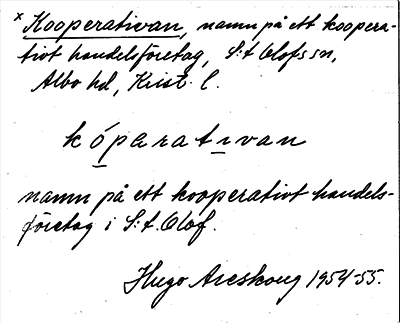 × Kooperativan, namn på ett koopera-
tivt handelsföretag, S:t Olofs sn,
Albo hd, Krist. l.
kóparatıvan
namn på ett kooperativt handels-
företag i S:t. Olof.
Hugo Areskoug 1954-55.